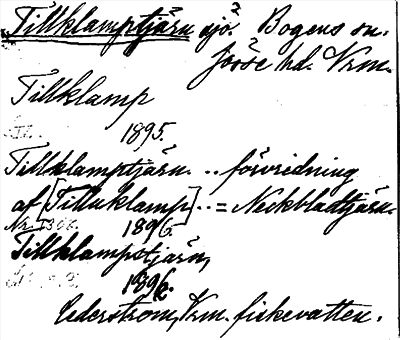 Tillklamptjärn sjö? Bogens sn.
Jösse hd. Vrm.
Tillklamp
1895.
Tillklamptjärn... förvridning
af [Tilluklamp].. = Neckbladtjärn.
1896.
Tillklampstjärn,
1896.
Cederström, Vrm. fiskevatten.